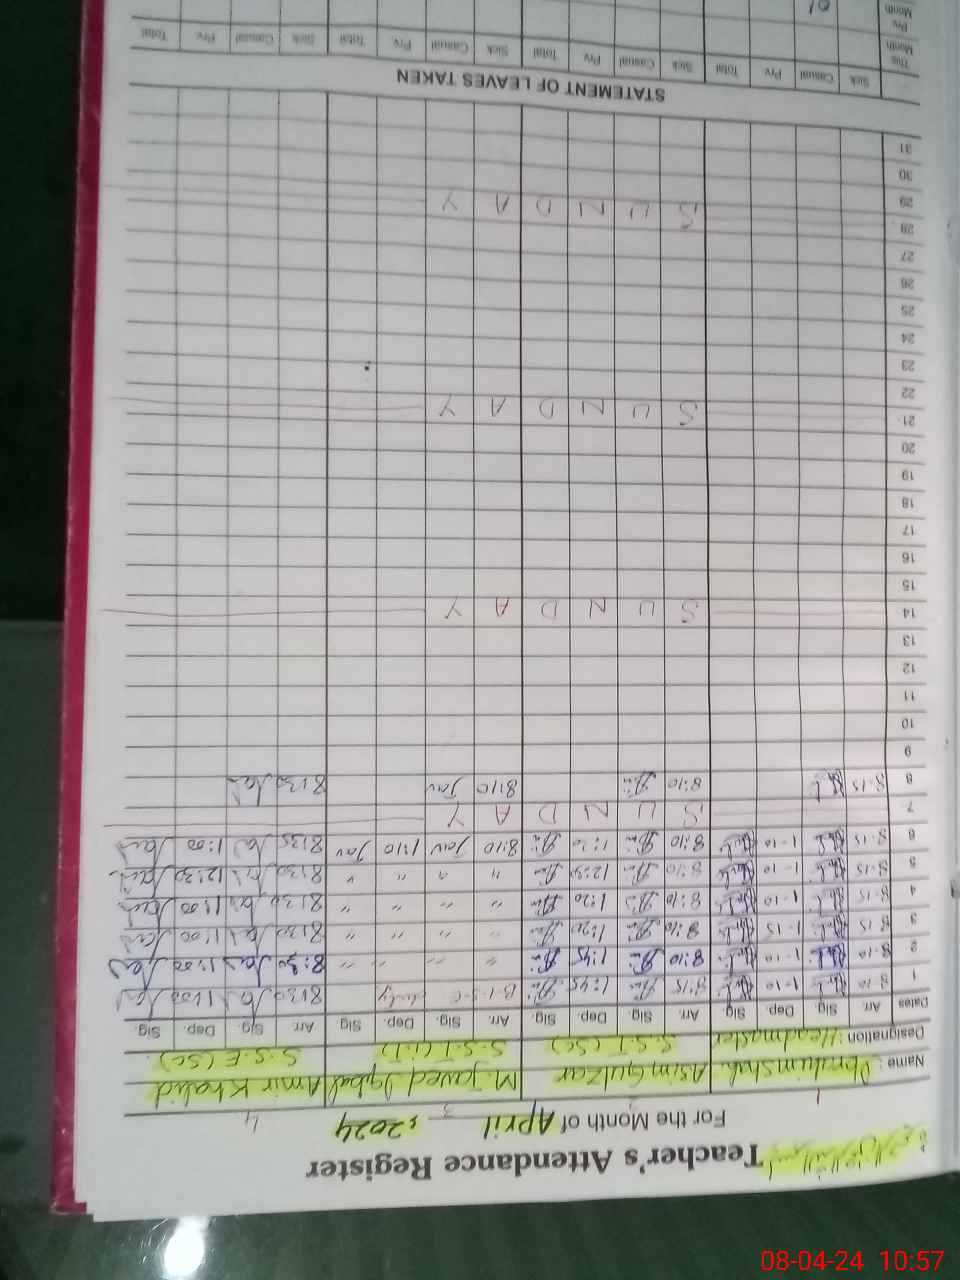 Teacher's Attendance Register
For the Month of April : 2024
1 2 3 4
Name : Ibrahim Shah Asim Gulzar M. Javed Iqbal Amir Khalid
Designation Headmaster S.S.T (SC) S.S.T (I.T) S.S.E (SC)
Dates Arr. Sig. Dep. Sig Arr. Sig. Dep. Sig. Arr. Sig. Dep. Sig Arr. Sig. Dep. Sig.
1 8-10 1-10 8:15 1:45 B-I-S-E duty 8:30 1:00
2 8-10 1-10 8:10 1:45 " " " " 8:30 1:00
3 8-15 1-15 8:10 1:20 " " " " 8:30 1:00
4 8-15 1-10 8:10 1:20 " " " " 8:30 1:00
5 8-15 1-10 8:10 12:30 " " " " 8:30 12:30
6 8-15 1-10 8:10 1:20 8:10 Jav 1:10 Jav 8:30 1:00
7 S U N D A Y
8 8-15 8:10 8:10 Jav 8:30
9
10
11
12
13
14 S U N D A Y
15
16
17
18
19
20
21 S U N D A Y
22
23
24
25
26
27
28 S U N D A Y
29
30
31
STATEMENT OF LEAVES TAKEN
Sick Casual Prv Total Sick Casual Prv Total Sick Casual Prv. Total Sick Casual Prv. Total
This Month
Prv. Month 01
08-04-24 10:57